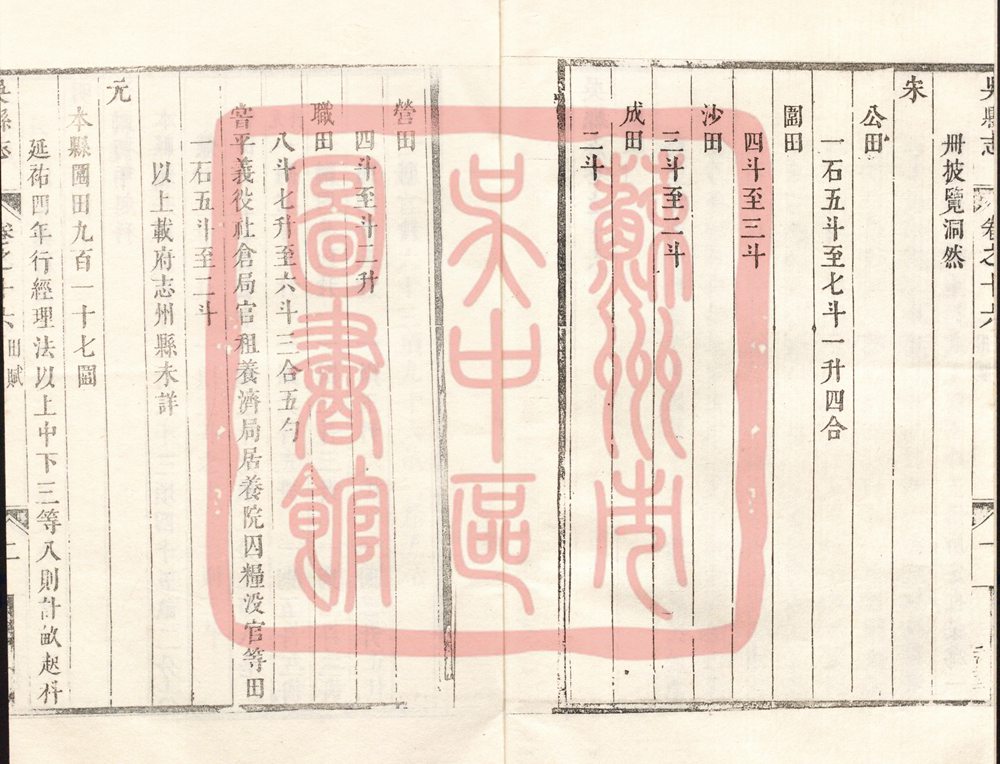 吳縣志
卷之十六
一
冊披覽洞然
宋
公田
一石五斗至七斗一升四合
圍田
四斗至三斗
沙田
三斗至二斗
成田
二斗
營田
四斗至斗二升
職田
八斗七升至六斗三合五勺
常平義役社倉局官租養濟局居養院囚糧没官等田
一石五斗至二斗
以上載府志州縣未詳
元
本縣圍田九百一十七圍
延祐四年行經理法以上中下三等八則計畝起科
吳縣志
卷之十六
田賦
二
蘇州市
吳中區
圖書館